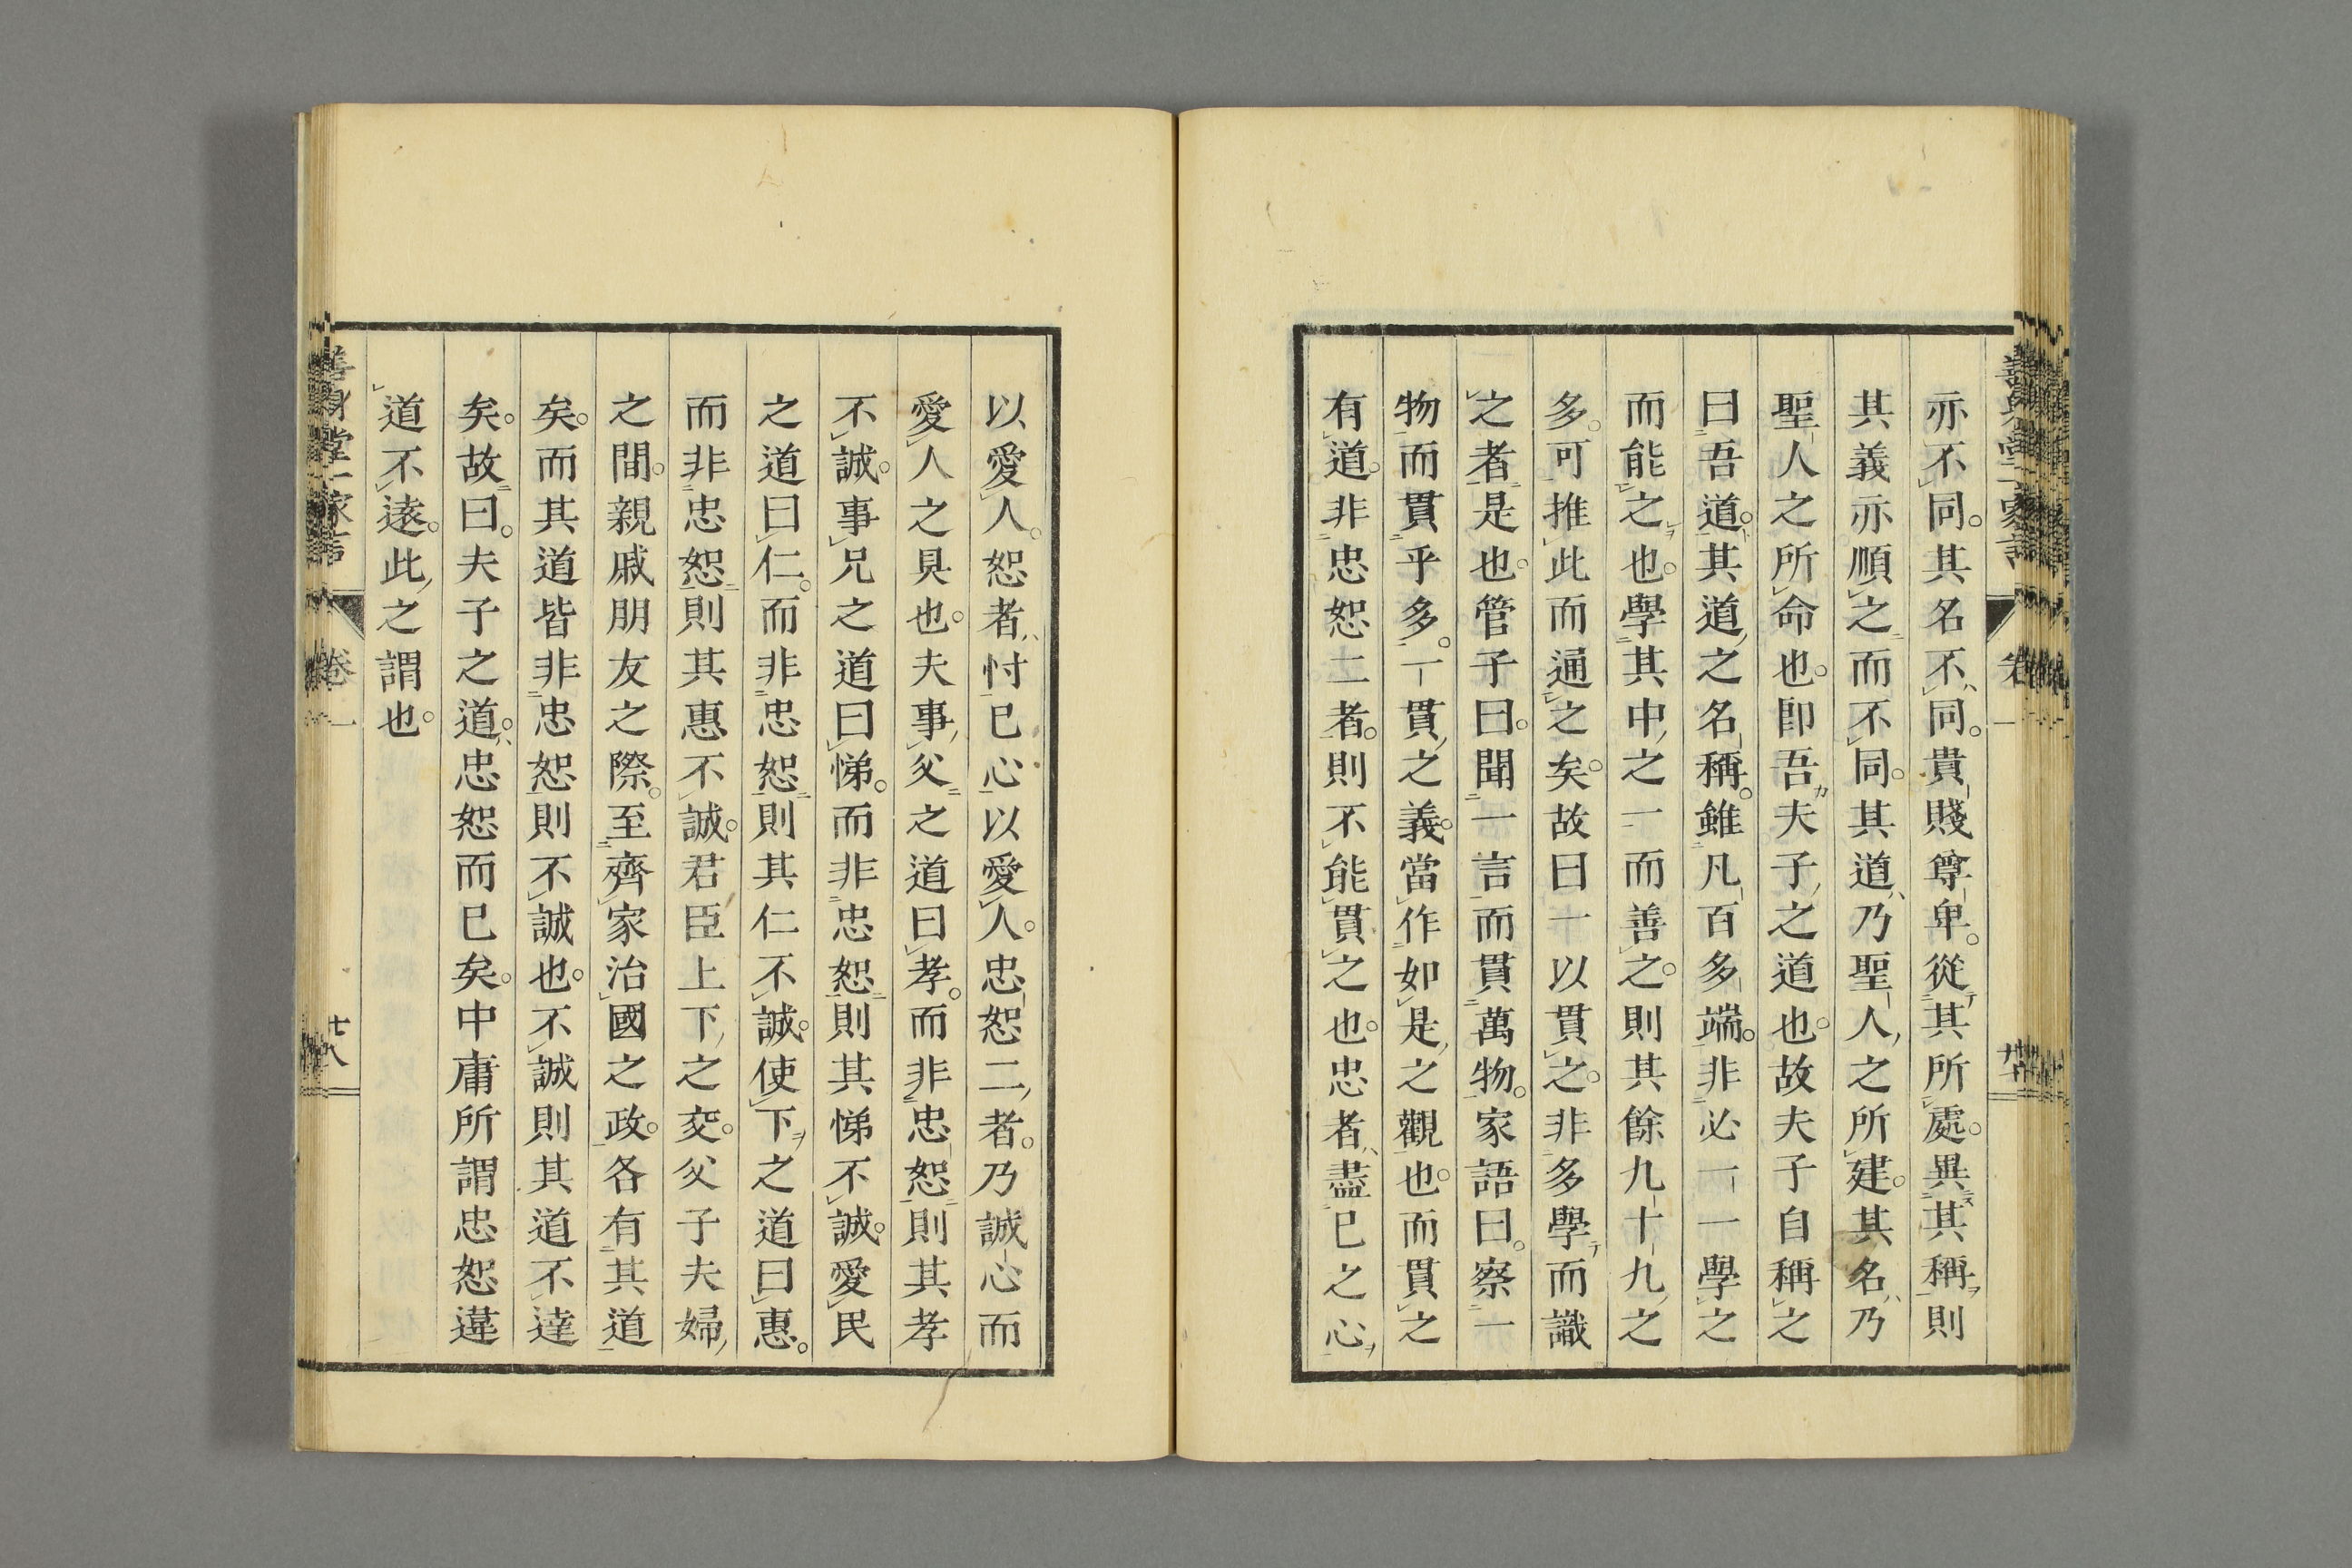 亦不同。其名不同。貴賤尊卑。從其所處。異其稱則
其義亦順之而不同。其道乃聖人之所建。其名乃
聖人之所命也。卽吾夫子之道也。故夫子自稱之
曰吾道。其道之名稱。雖凡百多端。非必一一學之
而能之也。學其中之一而善之。則其餘九十九之
多。可推此而通之矣。故曰一以貫之。非多學而識
之者是也。管子曰。聞一言而貫萬物。家語曰。察一
物而貫乎多。一貫之義。當作如是之觀也。而貫之
有道。非忠恕二者。則不能貫之也。忠者盡已之心
以愛人。恕者忖已心以愛人。忠恕二者。乃誠心而
愛人之具也。夫事父之道曰孝。而非忠恕則其孝
不誠。事兄之道曰悌。而非忠恕則其悌不誠。愛民
之道曰仁。而非忠恕則其仁不誠。使下之道曰惠。
而非忠恕則其惠不誠。君臣上下之交。父子夫婦
之間。親戚朋友之際。至齊家治國之政。各有其道
矣。而其道皆非忠恕則不誠也。不誠則其道不達
矣。故曰。夫子之道。忠恕而已矣。中庸所謂忠恕違
道不遠。此之謂也。
善身堂一家言 卷一 廿八